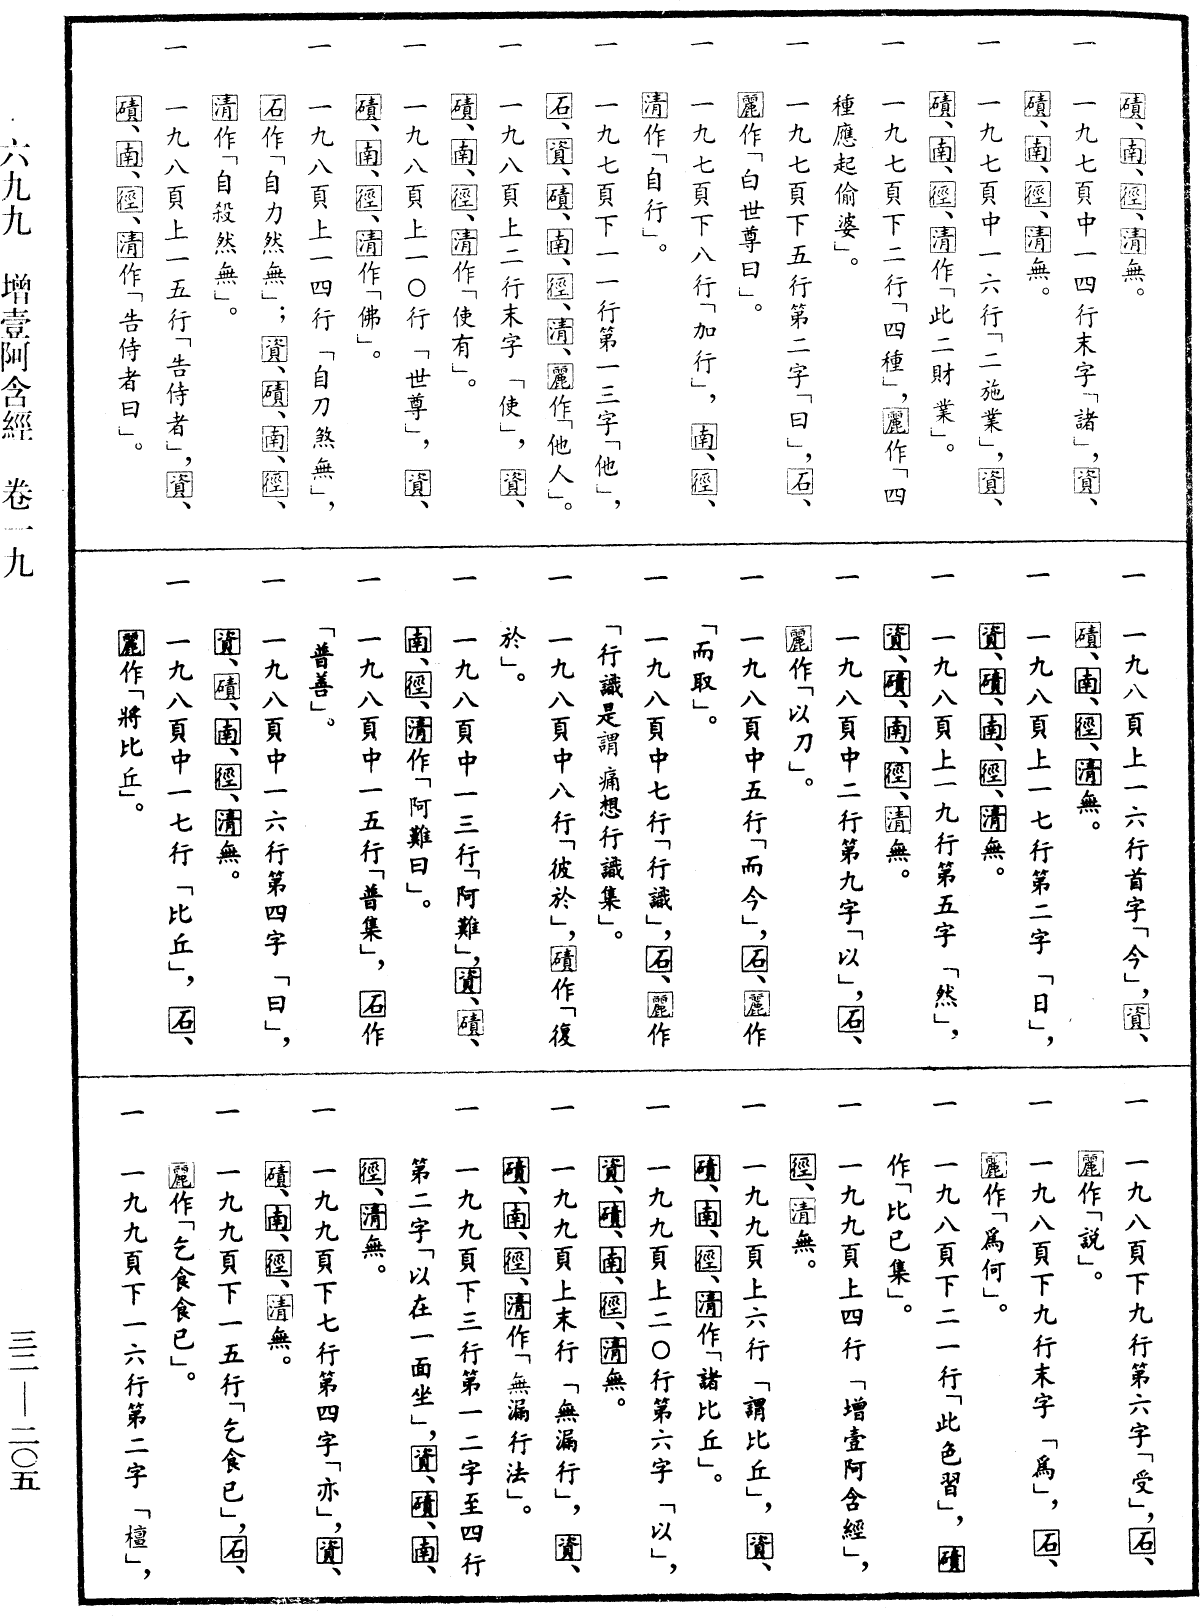 磧、南、徑、清無。
一　一九七頁中一四行末字「諸」，資、
磧、南、徑、清無。
一　一九七頁中一六行「二施業」，資、
磧、南、徑、清作「此二財業」。
一　一九七頁下二行「四種」，麗作「四
種應起偷婆」。
一　一九七頁下五行第二字「曰」，石、
麗作「白世尊曰」。
一　一九七頁下八行「加行」，南、徑、
清作「自行」。
一　一九七頁下一一行第一三字「他」，
石、資、磧、南、徑、清、麗作「他人」。
一　一九八頁上二行末字「使」，資、
磧、南、徑、清作「使有」。
一　一九八頁上一〇行「世尊」，資、
磧、南、徑、清作「佛」。
一　一九八頁上一四行「自刀煞無」，
石作「自力然無」；資、磧、南、徑、
清作「自殺然無」。
一　一九八頁上一五行「告侍者」，資、
磧、南、徑、清作「告侍者曰」。
一　一九八頁上一六行首字「今」，資、
磧、南、徑、清無。
一　一九八頁上一七行第二字「日」，
資、磧、南、徑、清無。
一　一九八頁上一九行第五字「然」，
資、磧、南、徑、清無。
一　一九八頁中二行第九字「以」，石、
麗作「以刀」。
一　一九八頁中五行「而今」，石、麗作
「而取」。
一　一九八頁中七行「行識」，石、麗作
「行識是謂痛想行識集」。
一　一九八頁中八行「彼於」，磧作「復
於」。
一　一九八頁中一三行「阿難」，資、磧、
南、徑、清作「阿難曰」。
一　一九八頁中一五行「普集」，石作
「普善」。
一　一九八頁中一六行第四字「曰」，
資、磧、南、徑、清無。
一　一九八頁中一七行「比丘」，石、
麗作「將比丘」。
一　一九八頁下九行第六字「受」，石、
麗作「説」。
一　一九八頁下九行末字「爲」，石、
麗作「爲何」。
一　一九八頁下二一行「此色習」，磧
作「比已集」。
一　一九九頁上四行「增壹阿含經」，
徑、清無。
一　一九九頁上六行「謂比丘」，資、
磧、南、徑、清作「諸比丘」。
一　一九九頁上二〇行第六字「以」，
資、磧、南、徑、清無。
一　一九九頁上末行「無漏行」，資、
磧、南、徑、清作「無漏行法」。
一　一九九頁下三行第一二字至四行
第二字「以在一面坐」，資、磧、南、
徑、清無。
一　一九九頁下七行第四字「亦」，資、
磧、南、徑、清無。
一　一九九頁下一五行「乞食已」，石、
麗作「乞食食已」。
一　一九九頁下一六行第二字「檀」，
六九九　增壹阿含經　卷一九
三二——二〇五